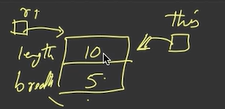 r1
this
length 10
breadth 5